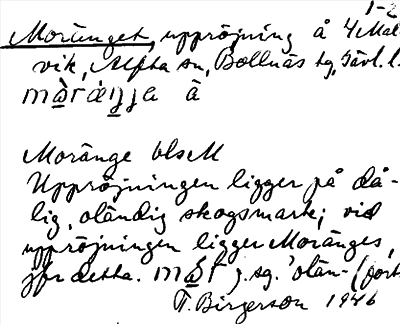 1-2
Moränget, uppröjning å 4 Mal-
vik, Alfta sn, Bollnäs tg, Gävl. l.
Moränge bbsM
Uppröjningen ligger på då-
lig, oländig skogsmark; vid
uppröjningen ligger Moränges,
jfr detta. j. sg. 'olän- (forts
T. Birgerson 1946